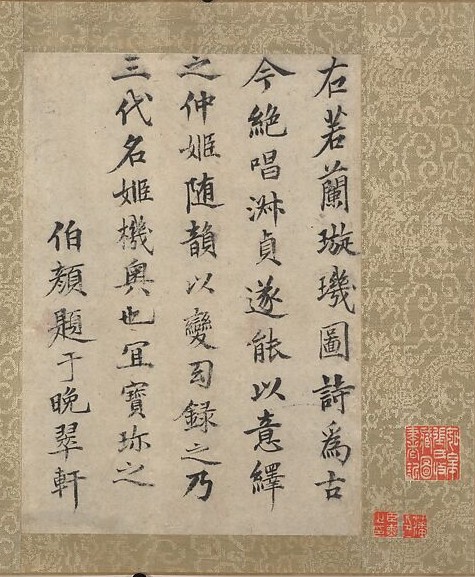 右若蘭璇璣圖詩爲古
今絕唱淑貞遂能以意繹
之仲姬随韻以變錄之乃
三代名姬機奧也宜寶珎之
伯顏題于晚翠軒